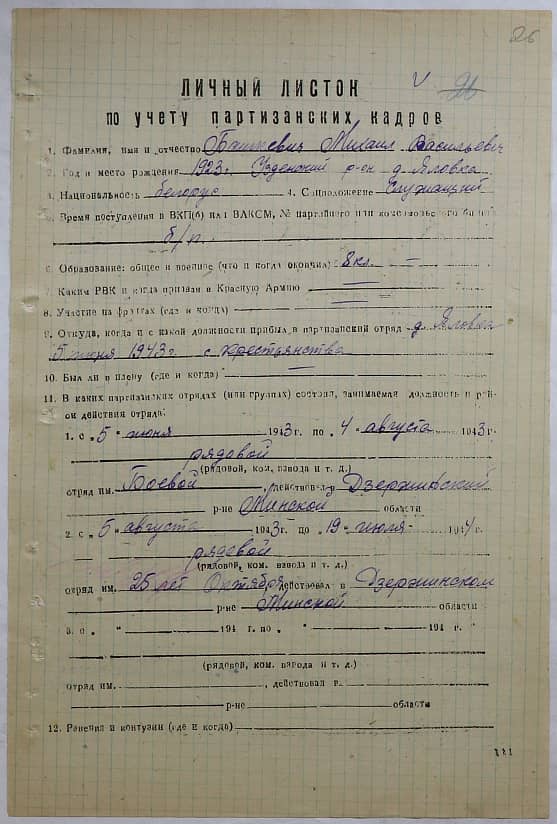 26
V 26
ЛИЧНЫЙ ЛИСТОК
по учету партизанских кадров
1. Фамилия, имя и отчество Михаил Васильевич
2. Год и место рождения 1923 г. Узденский р-он д. Яловка
3. Национальность белорус 4. Соцположение Служащий
5. Время поступления в ВКП(б) или ВЛКСМ, № партийного или комсомольского билета
б/п.
6. Образование: общее и военное (что и когда окончил) 8 кл. —
7. Каким РВК и когда призван в Красную Армию —
8. Участие на фронтах (где и когда) —
9. Откуда, когда и с какой должности прибыл в партизанский отряд д. Яловка
5 июня 1943 г. с крестьянства
10. Был ли в плену (где и когда) —
11. В каких партизанских отрядах (или группах) состоял, занимаемая должность и рай-
он действия отряда:
1. с „5" июня 1943 г. по „4" августа 1943 г.
рядовой
(рядовой, ком. взвода и т. д.)
отряд им. Боевой, действовал в Дзержинский
р-не Минской области
2. с „5" августа 1943 г. по „19" июля 1944 г.
рядовой
(рядовой, ком. взвода и т. д.)
отряд им. 25 лет Октября действовал в Дзержинском
р-не Минской области
3. с „ " 194 г. по „ " 194 г.
(рядовой, ком. взвода и т. д.)
отряд им. , действовал в
р-не области
12. Ранения и контузии (где и когда)